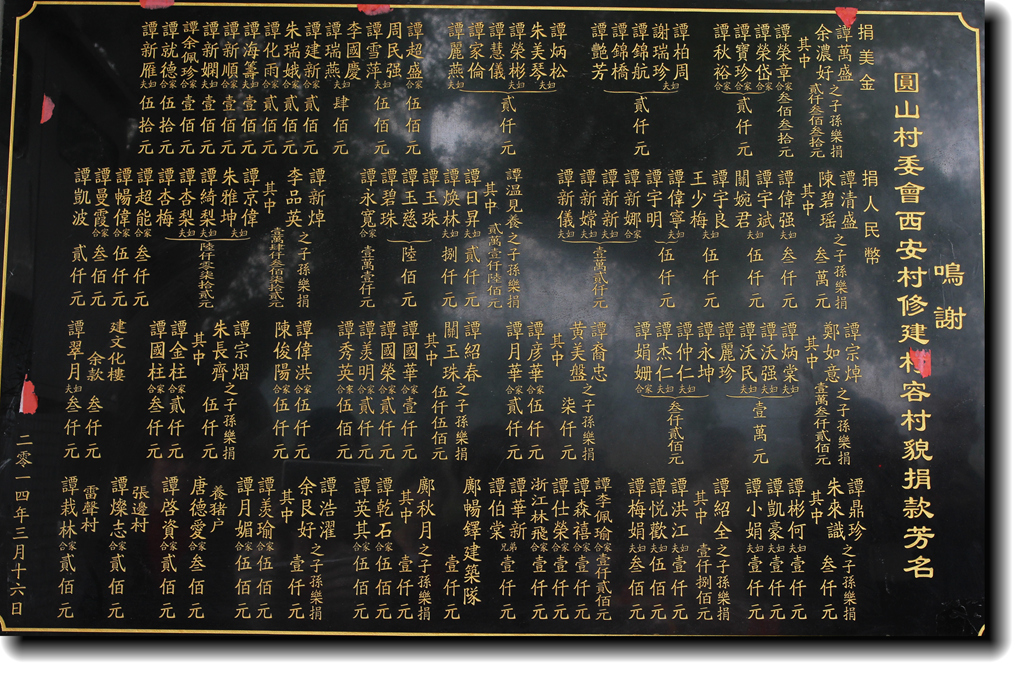 鳴謝
圓山村委會西安村修建村容村貌捐款芳名
捐美金
譚萬盛
余濃好之子孫樂捐
其中貳仟叁佰叁拾元
譚榮章合家叁佰叁拾元
譚榮岱合家
譚寶珍合家
譚秋裕合家
貳仟元
譚柏周
謝瑞珍夫妇
譚錦航
譚錦橋
譚艷芳
貳仟元
譚炳松
朱美琴夫妇
譚榮彬夫妇
譚慧儀
譚家倫
譚麗燕夫妇
貳仟元
譚超盛合家伍佰元
周民强
譚雪萍夫妇伍佰元
李國慶
譚瑞燕夫妇肆佰元
譚建新合家貳佰元
朱瑞娥合家貳佰元
譚化雨合家貳佰元
譚海籌夫妇壹佰元
譚新順合家壹佰元
譚新嫻夫妇壹佰元
譚余佩珍合家壹佰元
譚就德合家伍拾元
譚新雁夫妇伍拾元
捐人民幣
譚清盛
陳碧瑶之子孫樂捐
其中叁萬元
譚偉强夫妇叁仟元
譚宇斌
關婉君夫妇伍仟元
譚宇良
王少梅夫妇伍仟元
譚偉寧夫妇
譚宇明
伍仟元
譚新娜合家
譚新新夫妇
譚新嫦夫妇
譚新儀夫妇
壹萬貳仟元
譚温見養之子孫樂捐
其中貳萬壹仟陸佰元
譚日昇夫妇貳仟元
譚煥林夫妇捌仟元
譚玉珠
譚玉慈
譚碧珠
陸佰元
譚永寬合家壹萬壹仟元
譚新焯
李品英之子孫樂捐
其中壹萬肆仟叁佰柒拾貳元
譚京偉
朱雅坤夫妇
譚綺梨夫妇
譚杏梨夫妇
譚杏梅夫妇
陸仟零柒拾貳元
譚超能合家叁仟元
譚暢偉合家伍仟元
譚曼霞合家叁佰元
譚凱波貳仟元
譚宗焯
鄭如意之子孫樂捐
其中壹萬叁仟貳佰元
譚炳棠夫妇
譚沃强夫妇
譚沃民夫妇
譚麗珍夫妇
壹萬元
譚永坤夫妇
譚仲仁夫妇
譚杰仁夫妇
譚娟姍合家
叁仟貳佰元
譚裔忠
黄美盤之子孫樂捐
其中柒仟元
譚彦華合家伍仟元
譚月華合家貳仟元
譚紹春
關玉珠之子孫樂捐
其中伍仟伍佰元
譚國華合家壹仟元
譚國榮合家貳仟元
譚美明合家貳仟元
譚秀英合家伍佰元
譚偉洪合家伍仟元
陳俊陽合家伍仟元
譚宗熠
朱長齊之子孫樂捐
其中伍仟元
譚金柱合家貳仟元
譚國柱合家叁仟元
建文化樓
余款叁仟元
譚翠月夫妇叁仟元
譚鼎珍
朱來識之子孫樂捐
其中叁仟元
譚彬何夫妇壹仟元
譚凱豪合家壹仟元
譚小娟夫妇壹仟元
譚紹全之子孫樂捐
其中壹仟捌佰元
譚洪江夫妇壹仟元
譚悦歡夫妇伍佰元
譚梅娟夫妇叁佰元
譚李佩瑜合家壹仟貳佰元
譚森禧合家壹仟元
譚仕榮合家壹仟元
浙江林飛合家壹仟元
譚華新
譚伯棠兄弟壹仟元
鄺暢鐸建築隊壹仟元
鄺秋月之子孫樂捐
其中壹仟元
譚乾石合家伍佰元
譚英其合家伍佰元
譚浩濯
余良好之子孫樂捐
其中壹仟元
譚美瑜合家伍佰元
譚月媚合家伍佰元
養猪户
唐德愛合家叁佰元
譚啓資合家貳佰元
張邊村
譚燦志合家貳佰元
雷聲村
譚栽林合家貳佰元
二零一四年三月十六日